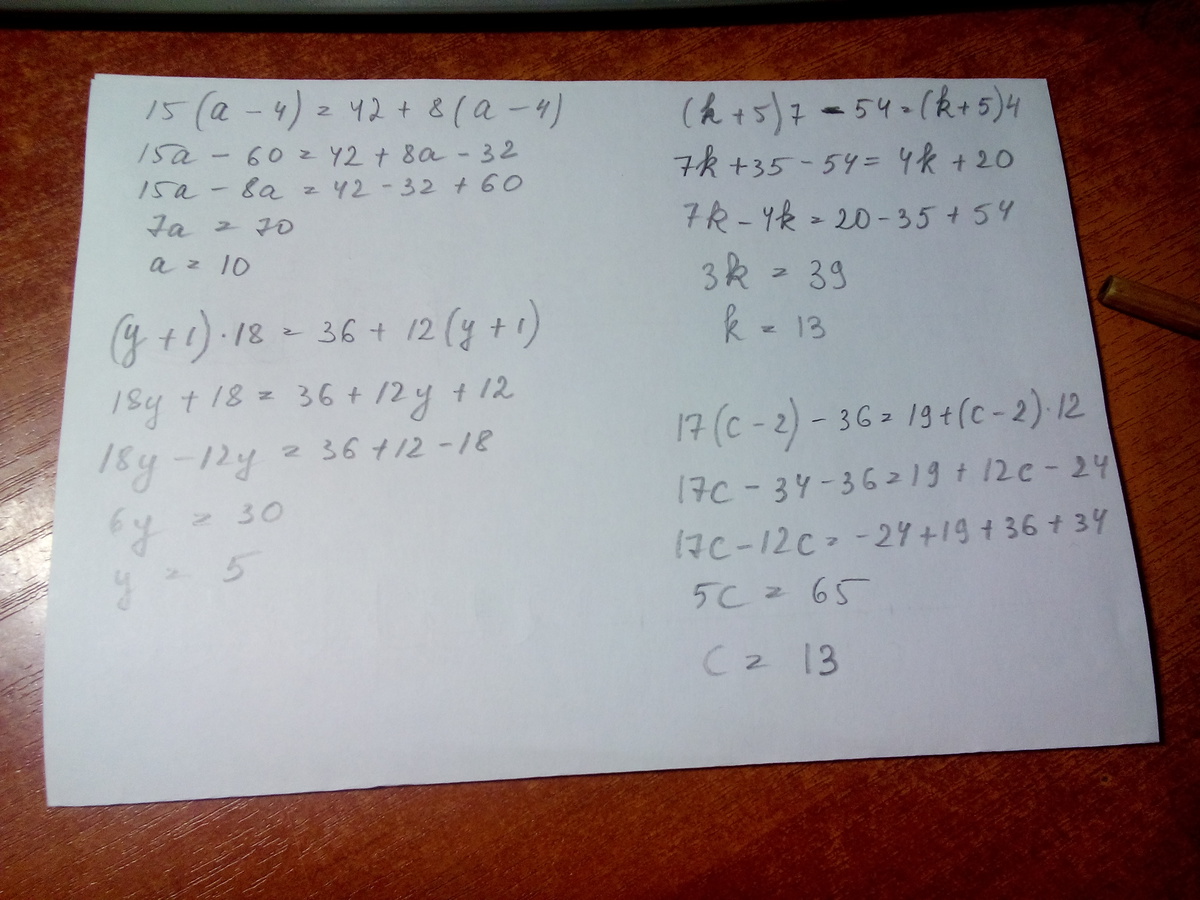 15(a-4)=42+8(a-4)
15a-60=42+8a-32
15a-8a=42-32+60
7a=70
a=10
(y+1)·18=36+12(y+1)
18y+18=36+12y+12
18y-12y=36+12-18
6y=30
y=5
(k+5)7-54=(k+5)4
7k+35-54=4k+20
7k-4k=20-35+54
3k=39
k=13
17(c-2)-36=19+(c-2)·12
17c-34-36=19+12c-24
17c-12c=-24+19+36+34
5c=65
c=13